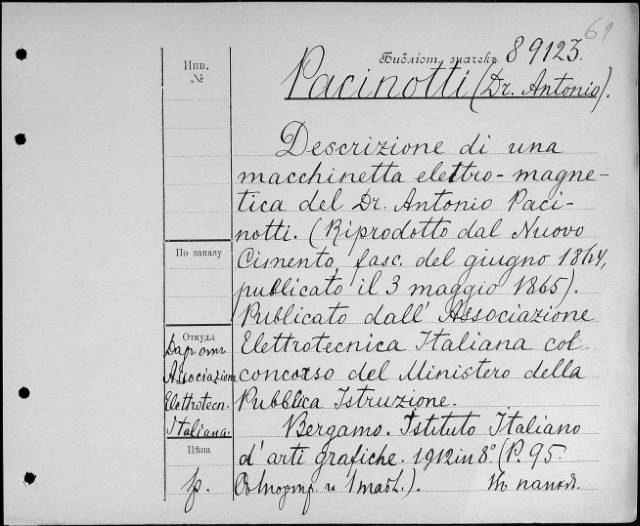 61
Библіот. значекъ 89123.
Инв.
№
Pacinotti (Dr. Antonio).
Descrizione di una
macchinetta elettro-magne-
tica del Dr. Antonio Paci-
notti. (Riprodotto dal Nuovo
По заказу
Cimento, fasc. del giugno 1864,
publicato il 3 maggio 1865).
Publicato dall' Associazione
Откуда
Elettrotecnica Italiana col
Даръ отъ
Associazione
concorso del Ministero della
Elettrotecn.
Pubblica Istruzione.
Italiana.
Bergamo. Istituto Italiano
Цѣна
d'arti grafiche. 1912 in 8° (P. 95
р.
1 табл.). Въ папкѣ.